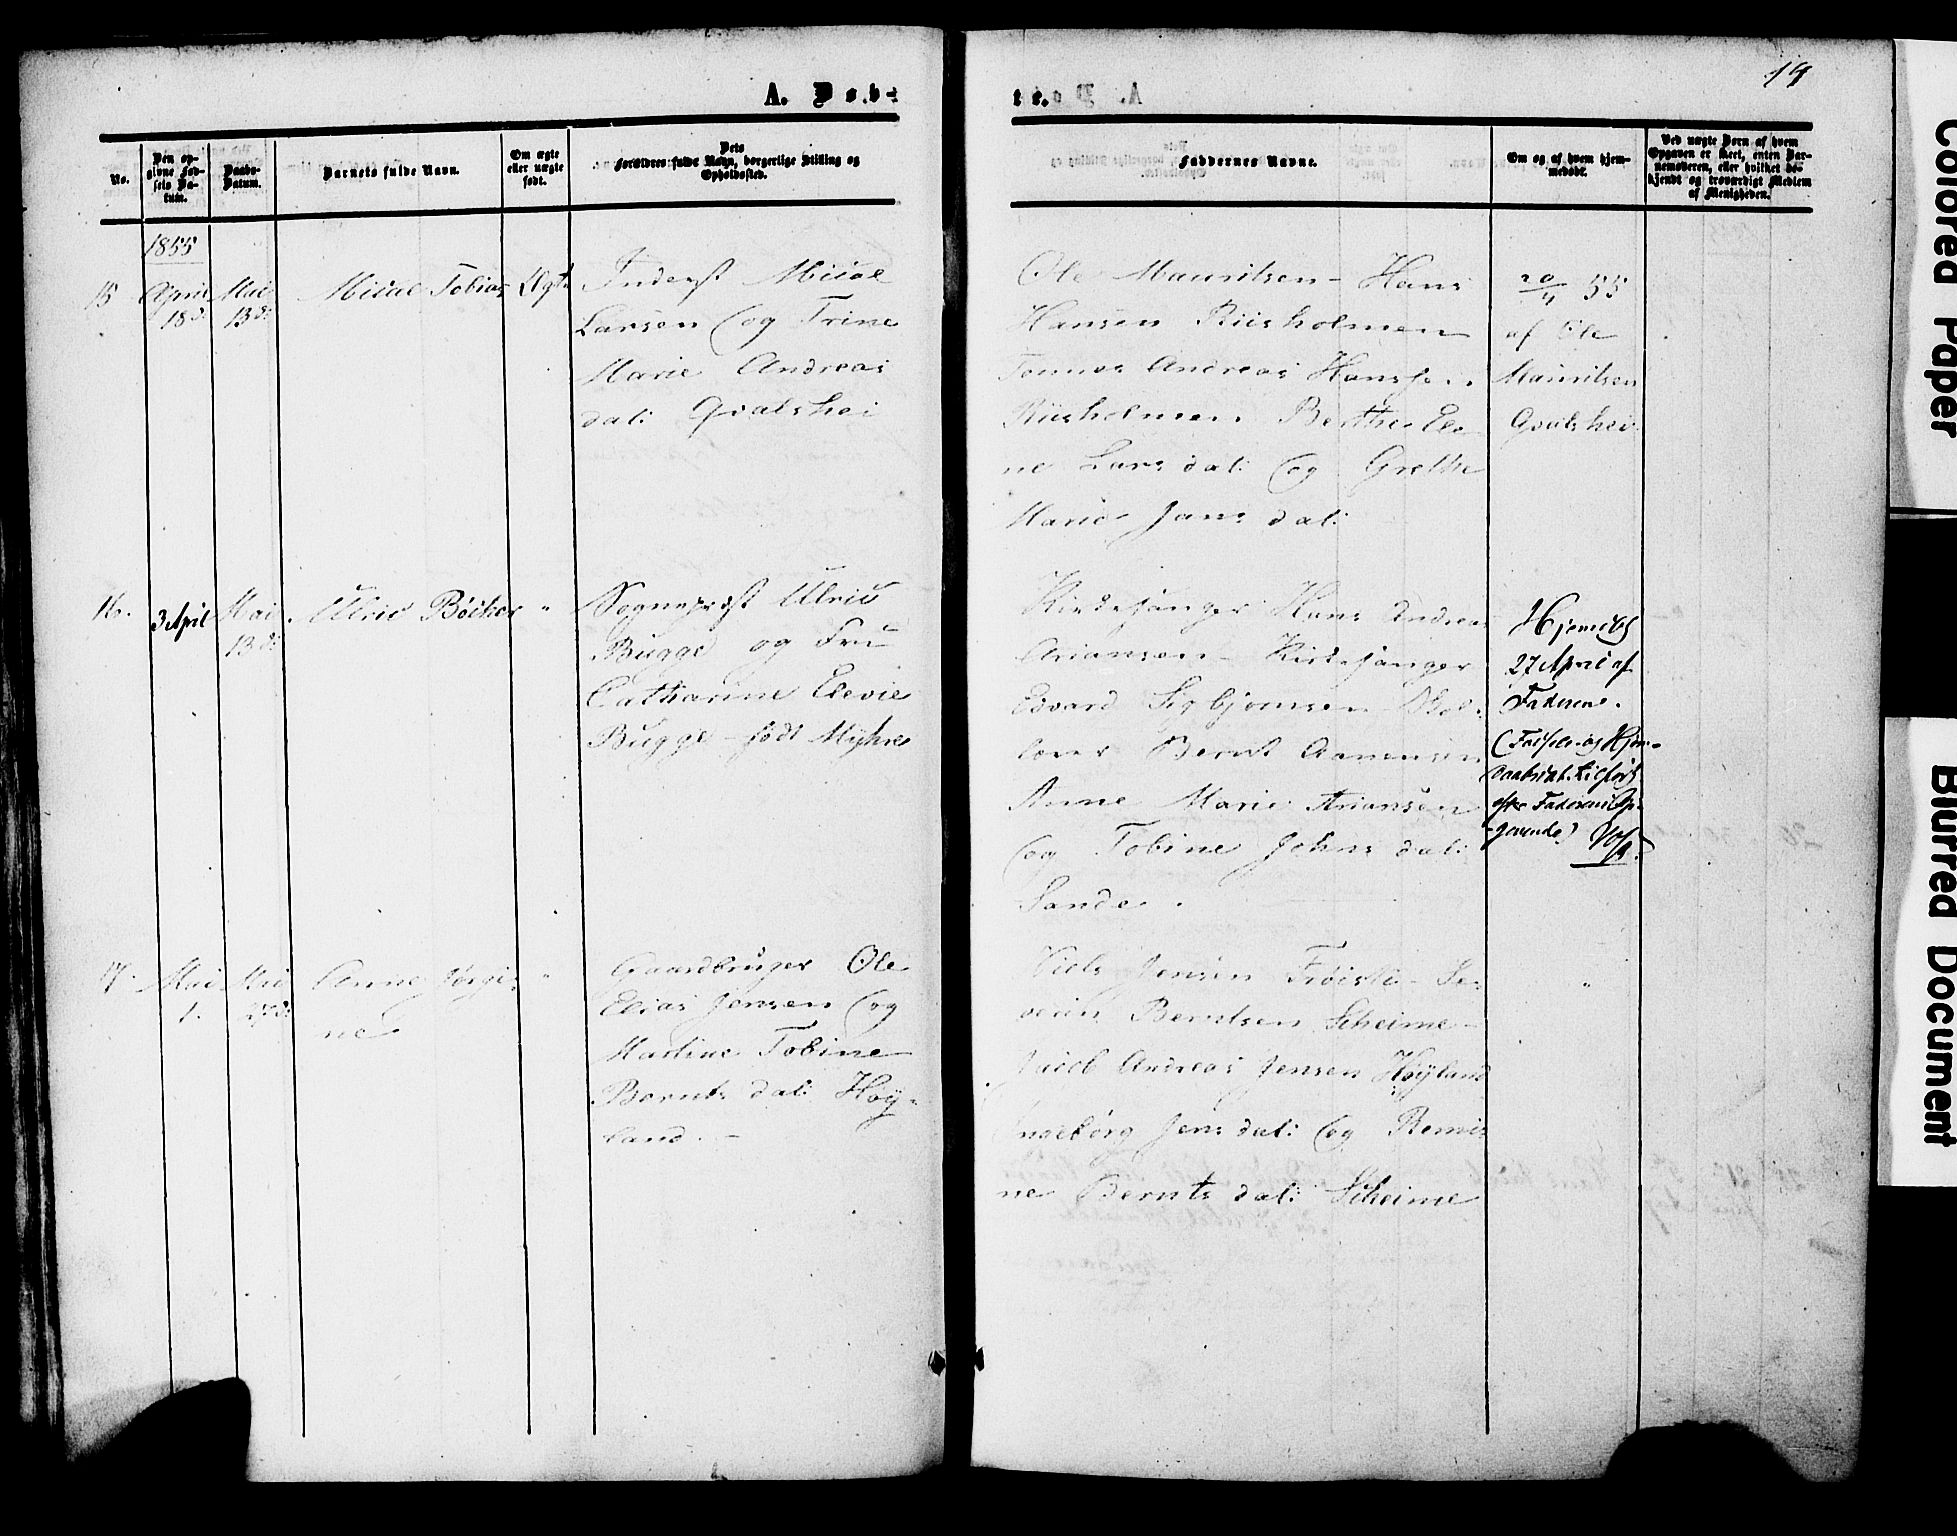 A. Døb-
te.
19
No.
Den op-
givne Fød-
sels Da-
tum.
Daabs-
Datum.
Barnets fulde Navn.
Om ægte
eller uægte
født.
Dets
Forældres fulde Navn, borgerlige Stilling og
Opholdssted.
Faddernes Navne.
Om og af hvem hjem-
medøbt.
Ved uægte Børn af hvem
Opgaven er skeet, enten Bar-
nemoderen, eller hvilket be-
kjendt og troværdigt Medlem
af Menigheden.
1855
15
April
18d:
Mai
13d:
Micael Tobias
Ægte
Inderst Micael
Larsen og Trine
Marie Andreas
dat: Qvalshei
Ole Mauritsen - Hans
Hansen Riisholmen
Tønnes Andreas Hansen
Riisholmen Berthe Ele-
ne Larsdat: og Grethe
Marie Jansdat:
20/4 55
af Ole
Mauritsen
Qvalshei
16.
3 April
Mai
13d:
Ulric Böcker
"
Sogneprest Ulric
Bugge og Fru
Catharine Elevie
Bugge født Myhre
Kirkesanger Hans Andreas
Ariansen - Kirkesanger
Edvard Sigbjørnsen Skol-
lærer Bernt Aanensen
Anne Marie Ariansen
og Tobine Johnsdat:
Sande.
Hjemdøbt
27 April af
Faderen.
(Fødsels- og Hjem-
daabsdat. tilført
efter Faderens Op-
givende)
17.
Mai
1.
Mai
27d:
Anne Jørgi-
ne
"
Gaardbruger Ole
Elias Jensen og
Martine Tobine
Bernts dat: Høy-
land. -
Niels Jensen Frøisti - Se-
verin Berntsen Scheime -
Jacob Andreas Jensen Høyland
Ingeborg Jensdat: og Berni-
ne Berntsdat: Scheime
"
Colored Paper
Blurred Document